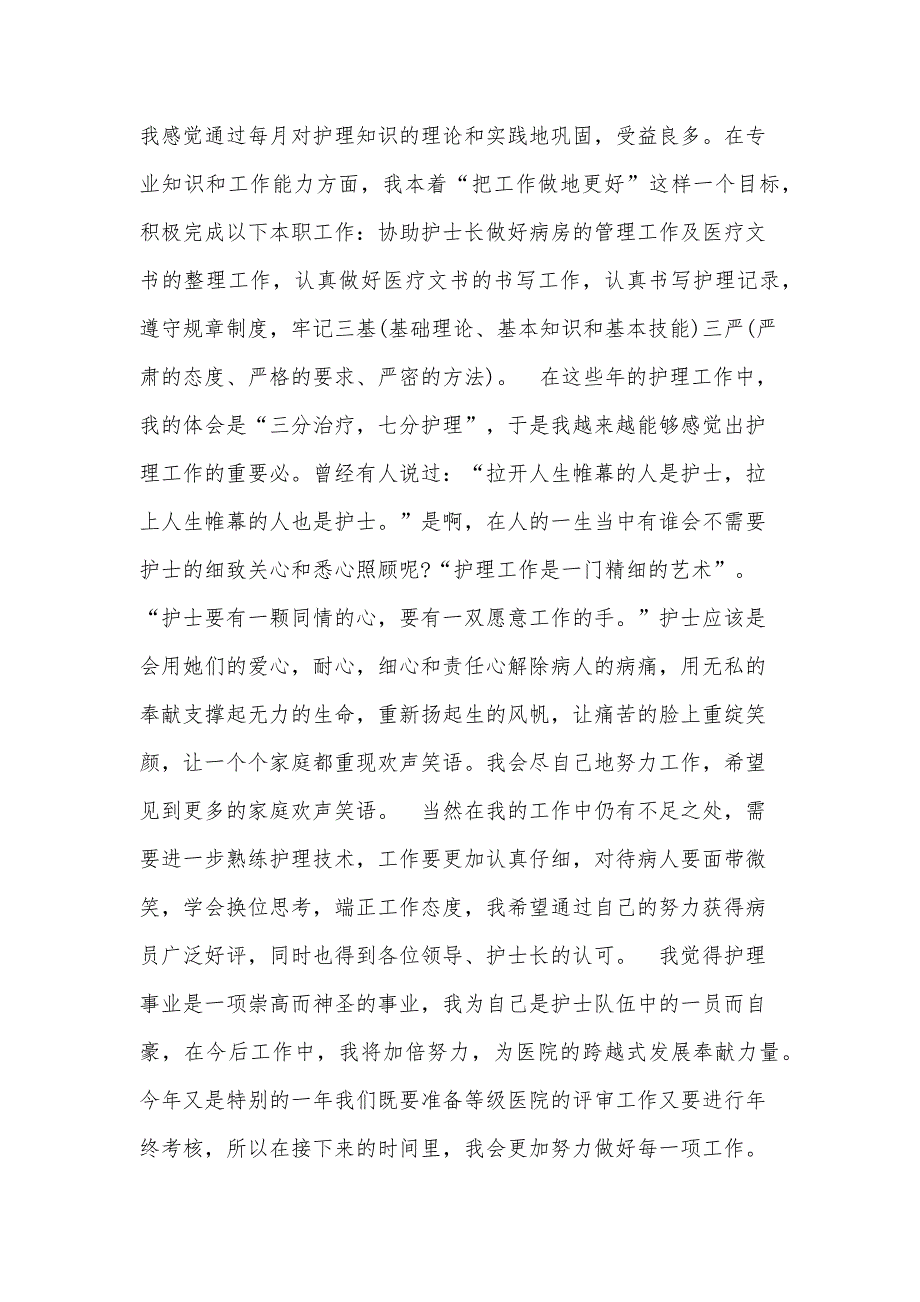 我感觉通过每月对护理知识的理论和实践地巩固，受益良多。在专
业知识和工作能力方面，我本着“把工作做地更好”这样一个目标，
积极完成以下本职工作：协助护士长做好病房的管理工作及医疗文
书的整理工作，认真做好医疗文书的书写工作，认真书写护理记录，
遵守规章制度，牢记三基(基础理论、基本知识和基本技能)三严(严
肃的态度、严格的要求、严密的方法)。　在这些年的护理工作中，
我的体会是“三分治疗，七分护理”，于是我越来越能够感觉出护
理工作的重要必。曾经有人说过：“拉开人生帷幕的人是护士，拉
上人生帷幕的人也是护士。”是啊，在人的一生当中有谁会不需要
护士的细致关心和悉心照顾呢?“护理工作是一门精细的艺术”。
“护士要有一颗同情的心，要有一双愿意工作的手。”护士应该是
会用她们的爱心，耐心，细心和责任心解除病人的病痛，用无私的
奉献支撑起无力的生命，重新扬起生的风帆，让痛苦的脸上重绽笑
颜，让一个个家庭都重现欢声笑语。我会尽自己地努力工作，希望
见到更多的家庭欢声笑语。　当然在我的工作中仍有不足之处，需
要进一步熟练护理技术，工作要更加认真仔细，对待病人要面带微
笑，学会换位思考，端正工作态度，我希望通过自己的努力获得病
员广泛好评，同时也得到各位领导、护士长的认可。　我觉得护理
事业是一项崇高而神圣的事业，我为自己是护士队伍中的一员而自
豪，在今后工作中，我将加倍努力，为医院的跨越式发展奉献力量。
今年又是特别的一年我们既要准备等级医院的评审工作又要进行年
终考核，所以在接下来的时间里，我会更加努力做好每一项工作。